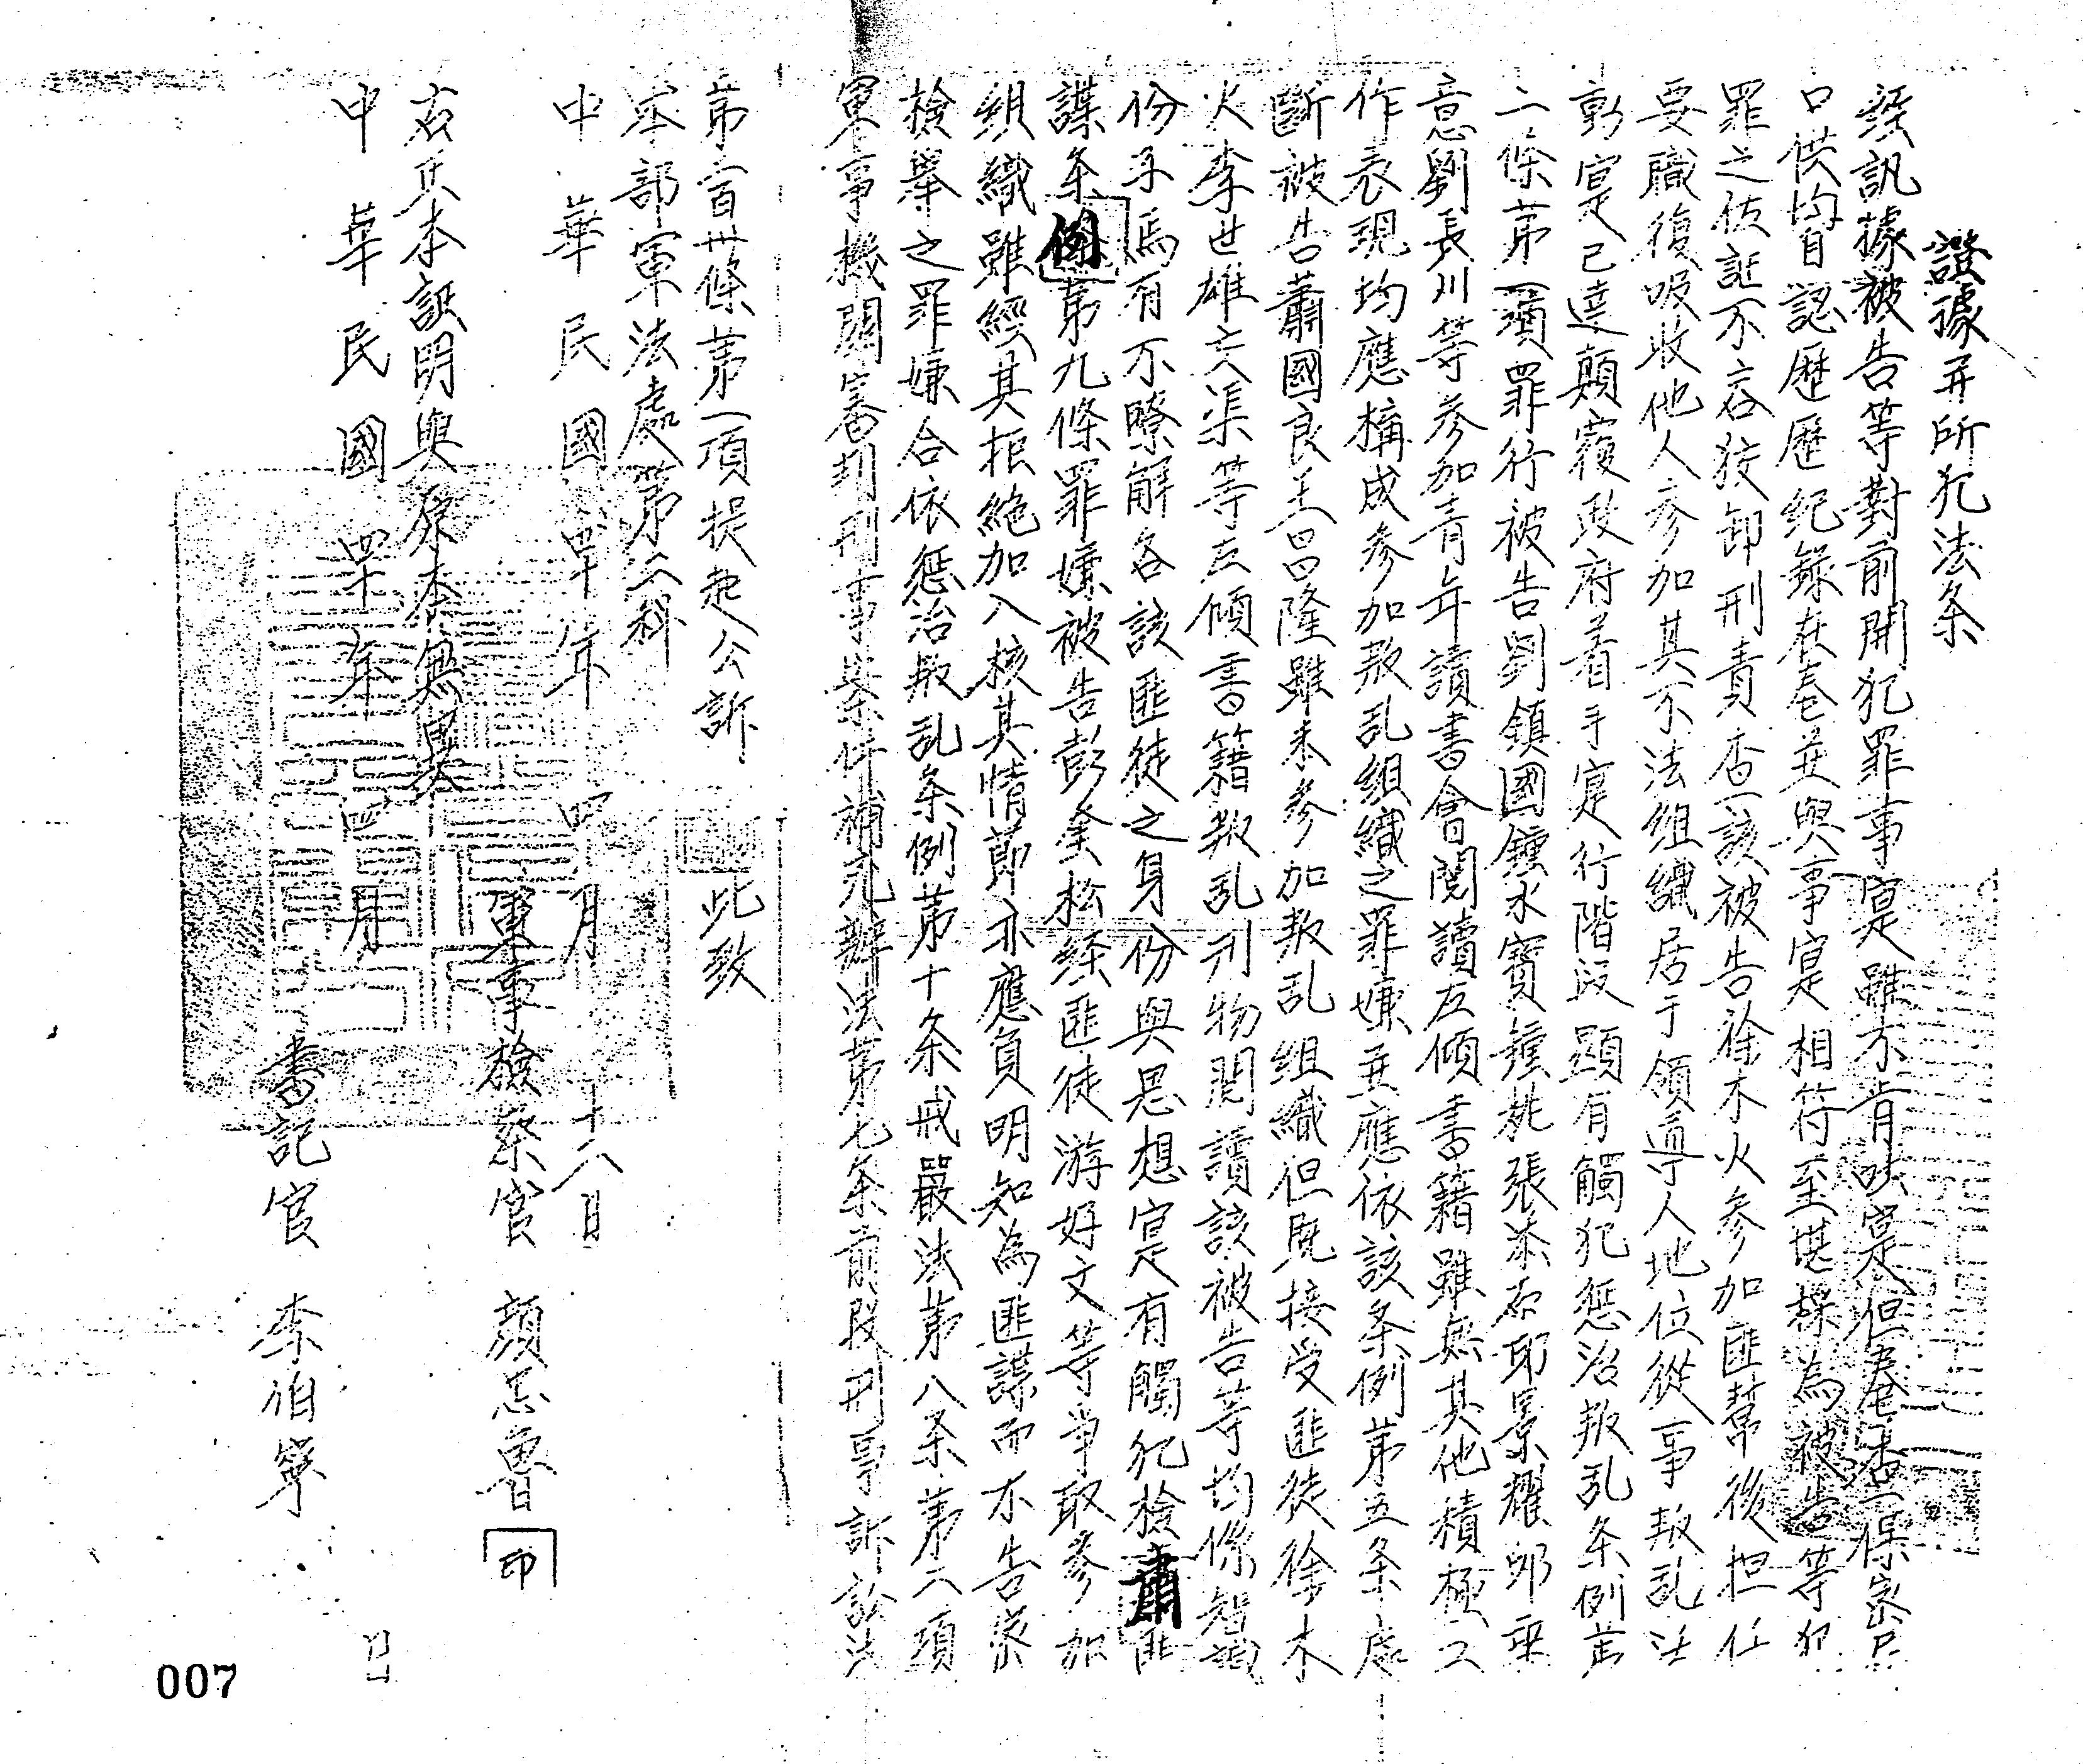 證據并所犯法条
經訊據被告等對前開犯罪事寔雖不肯吐寔但卷查保密局
口供均自認歷歷纪錄在卷並與事寔相符至堪採為被告等犯
罪之佐証不容狡卸刑責查該被告徐木火參加匪幫後担任
要職復吸收他人參加其不法組織居于領導人地位從事叛乱活
動寔已達顛覆政府着手寔行階段顯有觸犯懲治叛乱条例第
二條第一項罪行被告劉鎮國鍾水寶鍾桃張添石邱景耀邱垂
意劉長川等參加青年讀書會閱讀左傾書籍雖無其他積極工
作表現均應構成參加叛乱組織之罪嫌並應依該条例第五条處
斷被告蕭國良王昌隆雖未參加叛乱組織但既接受匪徒徐木
火李世雄交渠等左傾書籍叛乱刊物閱讀該被告等均係智識
份子焉有不瞭解各該匪徒之身份與思想寔有觸犯檢肅匪
諜条例第九條罪嫌被告彭金松經匪徒游好文等爭取參加
組織雖經其拒絕加入核其情節亦應負明知為匪諜而不告密
檢舉之罪嫌合依懲治叛乱条例第十条戒嚴法第八条第二項
軍事機關審判刑事案件補充辦法第七条前段刑事訴訟法
第二百卅條第一項提起公訴 此致
本部軍法處第二科
中華民國四十年四月十八日
軍事檢察官 顏忠魯 印
右具本証明與原本無異
中華民國四十年四月
書記官 李伯寧
007